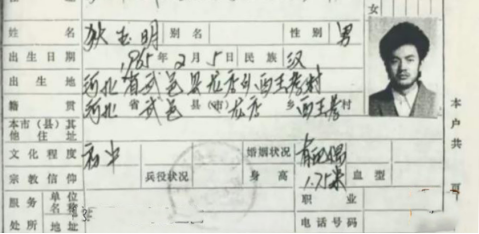 女
姓名 耿玉明 别名 性别 男
出生日期 1965年2月5日 民族 汉
出生地 河北省武邑县龙店乡西王孝村
籍贯 河北 省 武邑 县(市) 龙店 乡 西王孝 村
本市(县)其他住址
文化程度 初中 婚姻状况 有配偶
宗教信仰 兵役状况 身高 1.75米 血型
服务处所 单位名称 职业
地址 电话号码
本户共 页